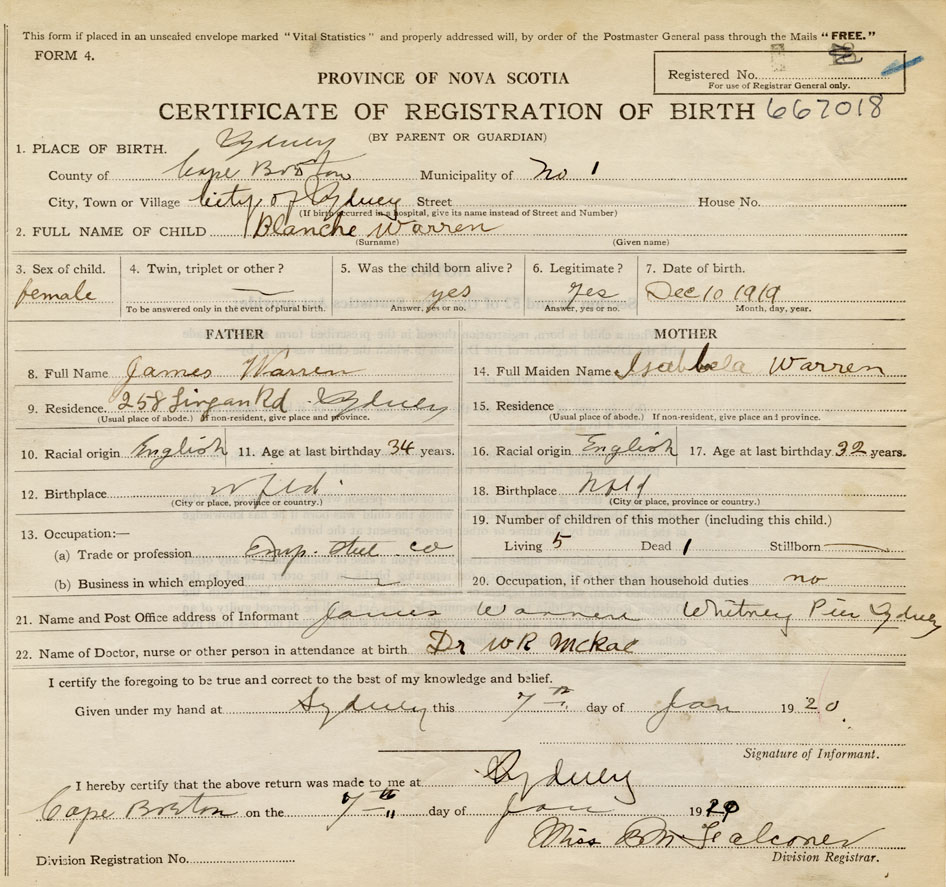 This form if placed in an unsealed envelope marked "Vital Statistics" and properly addressed will, by order of the Postmaster General pass through the Mails "FREE."
FORM 4.
Registered No.
For use of Registrar General only.
PROVINCE OF NOVA SCOTIA
CERTIFICATE OF REGISTRATION OF BIRTH 667018
(BY PARENT OR GUARDIAN)
1. PLACE OF BIRTH. Sydney
County of Cape Breton Municipality of No 1
City, Town or Village City of Sydney Street House No.
(If birth occurred in a hospital, give its name instead of Street and Number)
2. FULL NAME OF CHILD Blanche Warren
(Surname) (Given name)
3. Sex of child. 4. Twin, triplet or other? 5. Was the child born alive? 6. Legitimate? 7. Date of birth.
female — yes yes Dec 10 1919
To be answered only in the event of plural birth. Answer, yes or no. Answer, yes or no. Month, day, year.
FATHER MOTHER
8. Full Name James Warren 14. Full Maiden Name Isabbela Warren
9. Residence. 258 Lingan Rd Sydney 15. Residence
(Usual place of abode.) If non-resident, give place and province. (Usual place of abode.) If non-resident, give place and province.
10. Racial origin English 11. Age at last birthday 34 years. 16. Racial origin English 17. Age at last birthday 32 years.
12. Birthplace Nfld. 18. Birthplace Nfld
(City or place, province or country.) (City or place, province or country.)
13. Occupation:— 19. Number of children of this mother (including this child.)
(a) Trade or profession Emp. Steel Co Living 5 Dead 1 Stillborn —
(b) Business in which employed — 20. Occupation, if other than household duties no
21. Name and Post Office address of Informant James Warren Whitney Pier Sydney
22. Name of Doctor, nurse or other person in attendance at birth Dr W R McRae
I certify the foregoing to be true and correct to the best of my knowledge and belief.
Given under my hand at Sydney this 7th day of Jan 1920.
Signature of Informant.
I hereby certify that the above return was made to me at Sydney
Cape Breton on the 7th day of Jan 1920
Miss B M Falconer
Division Registration No. Division Registrar.